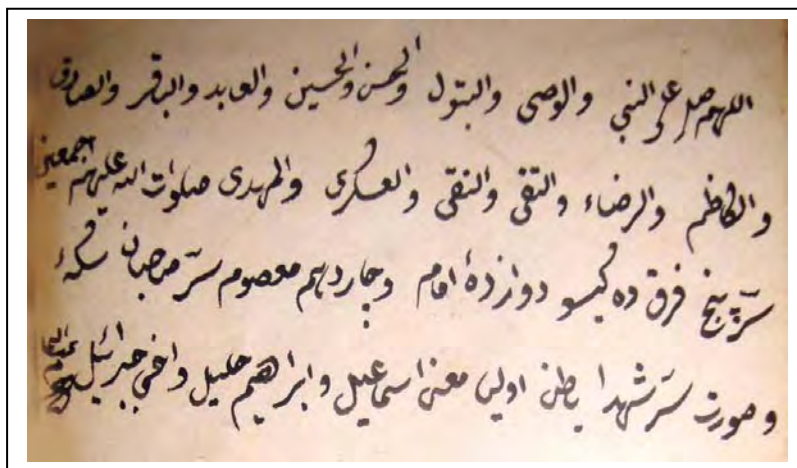 اللهم صل على النبي والوصى والبتول والحسن والحسين والعابد والباقر والصادق
والكاظم والرضاء والتقى والنقى والعسكرى والمهدى صلوات الله عليهم اجمعين
سرّ پنج فرق ده كيسو دوازدهٔ امام وچاردهم معصوم سرّ صاحبان
وصورت سرّ شهدا باطن اولين معنى اسماعيل وابراهيم خليل واخى جبرائيل